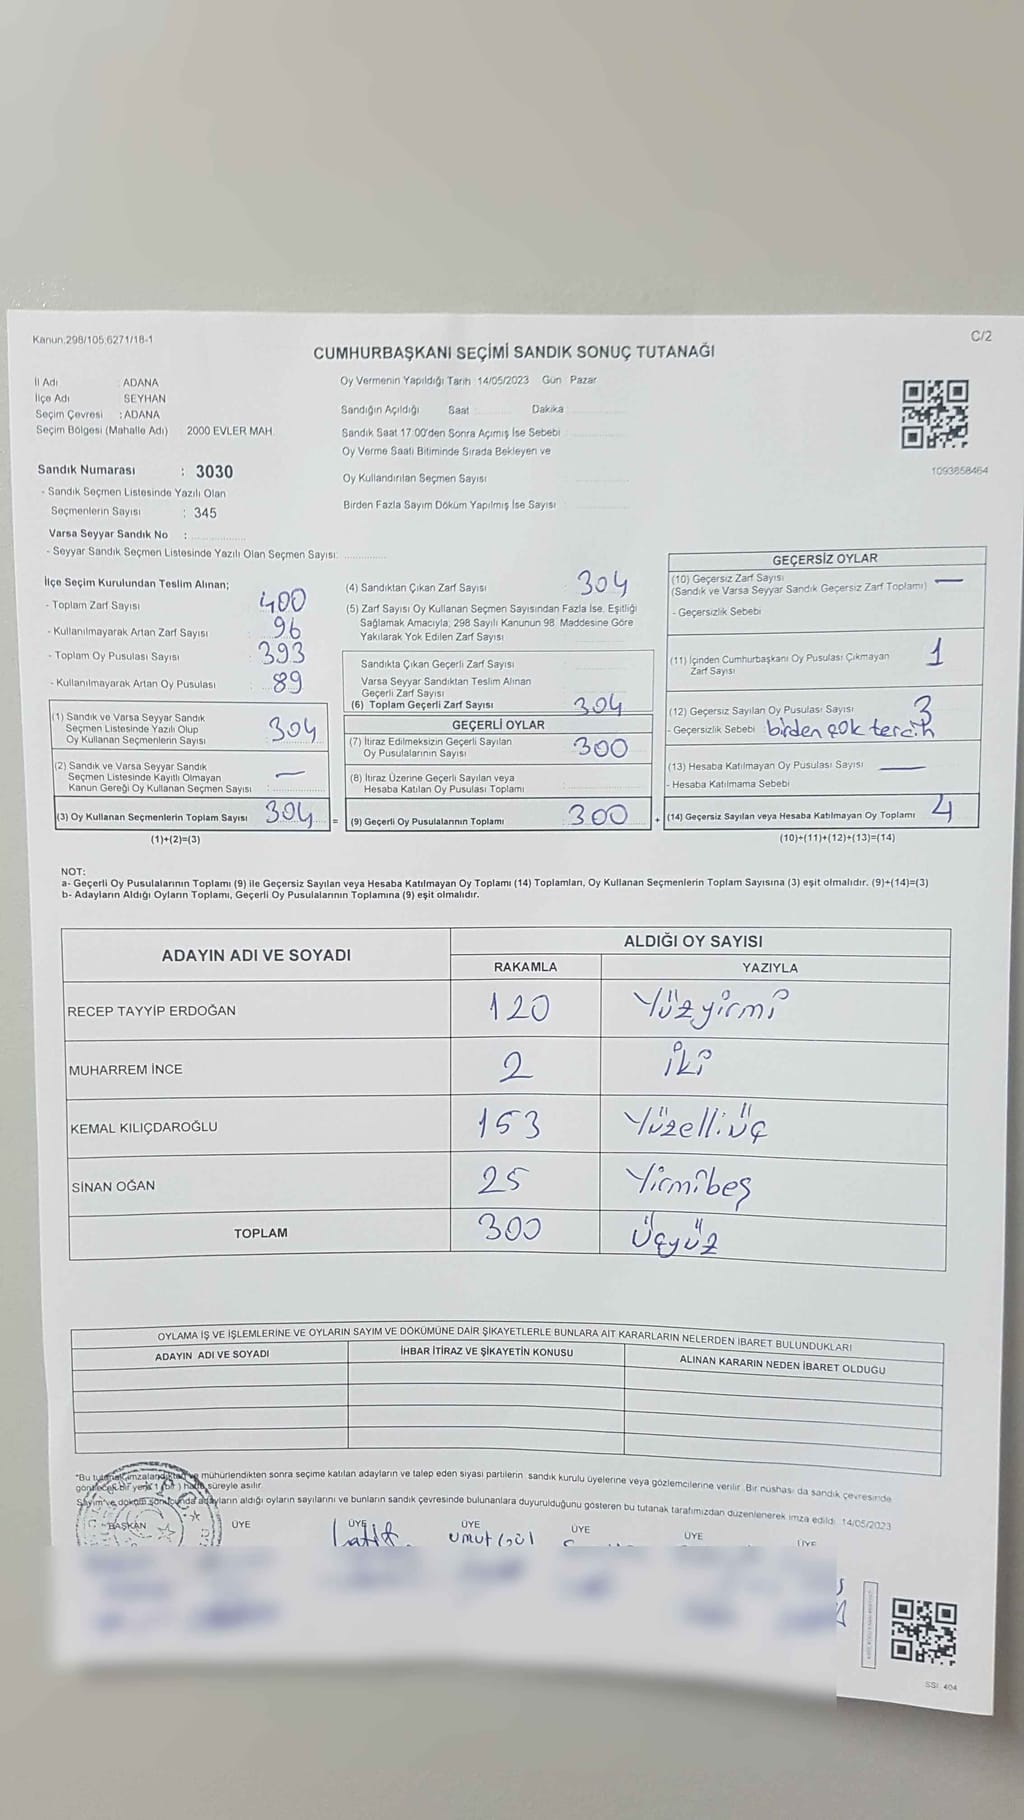 Kanun:298/105,6271/18-1
C/2
CUMHURBAŞKANI SEÇİMİ SANDIK SONUÇ TUTANAĞI
İl Adı : ADANA
İlçe Adı : SEYHAN
Seçim Çevresi : ADANA
Seçim Bölgesi (Mahalle Adı) 2000 EVLER MAH.
Oy Vermenin Yapıldığı Tarih 14/05/2023 Gün Pazar
Sandığın Açıldığı Saat ........ Dakika ........
Sandık Saat 17:00'den Sonra Açımış İse Sebebi
Oy Verme Saati Bitiminde Sırada Bekleyen ve
Oy Kullandırılan Seçmen Sayısı
Birden Fazla Sayım Döküm Yapılmış İse Sayısı
1093858464
Sandık Numarası : 3030
- Sandık Seçmen Listesinde Yazılı Olan
Seçmenlerin Sayısı : 345
Varsa Seyyar Sandık No : ..............
- Seyyar Sandık Seçmen Listesinde Yazılı Olan Seçmen Sayısı: ............
İlçe Seçim Kurulundan Teslim Alınan;
- Toplam Zarf Sayısı 400
- Kullanılmayarak Artan Zarf Sayısı 96
- Toplam Oy Pusulası Sayısı 393
- Kullanılmayarak Artan Oy Pusulası 89
(1) Sandık ve Varsa Seyyar Sandık
Seçmen Listesinde Yazılı Olup
Oy Kullanan Seçmenlerin Sayısı 304
(2) Sandık ve Varsa Seyyar Sandık
Seçmen Listesinde Kayıtlı Olmayan
Kanun Gereği Oy Kullanan Seçmen Sayısı : —
(3) Oy Kullanan Seçmenlerin Toplam Sayısı 304
(1)+(2)=(3)
(4) Sandıktan Çıkan Zarf Sayısı : 304
(5) Zarf Sayısı Oy Kullanan Seçmen Sayısından Fazla İse, Eşitliği
Sağlamak Amacıyla, 298 Sayılı Kanunun 98. Maddesine Göre
Yakılarak Yok Edilen Zarf Sayısı
Sandıkta Çıkan Geçerli Zarf Sayısı
Varsa Seyyar Sandıktan Teslim Alınan
Geçerli Zarf Sayısı
(6) Toplam Geçerli Zarf Sayısı 304
GEÇERLİ OYLAR
(7) İtiraz Edilmeksizin Geçerli Sayılan
Oy Pusulalarının Sayısı 300
(8) İtiraz Üzerine Geçerli Sayılan veya
Hesaba Katılan Oy Pusulası Toplamı
= (9) Geçerli Oy Pusulalarının Toplamı 300 +
GEÇERSİZ OYLAR
(10) Geçersiz Zarf Sayısı —
(Sandık ve Varsa Seyyar Sandık Geçersiz Zarf Toplamı)
- Geçersizlik Sebebi
(11) İçinden Cumhurbaşkanı Oy Pusulası Çıkmayan 1
Zarf Sayısı
(12) Geçersiz Sayılan Oy Pusulası Sayısı 3
- Geçersizlik Sebebi birden çok tercih
(13) Hesaba Katılmayan Oy Pusulası Sayısı —
- Hesaba Katılmama Sebebi
(14) Geçersiz Sayılan veya Hesaba Katılmayan Oy Toplamı 4
(10)+(11)+(12)+(13)=(14)
NOT:
a- Geçerli Oy Pusulalarının Toplamı (9) ile Geçersiz Sayılan veya Hesaba Katılmayan Oy Toplamı (14) Toplamları, Oy Kullanan Seçmenlerin Toplam Sayısına (3) eşit olmalıdır. (9)+(14)=(3)
b- Adayların Aldığı Oyların Toplamı, Geçerli Oy Pusulalarının Toplamına (9) eşit olmalıdır.
ADAYIN ADI VE SOYADI
ALDIĞI OY SAYISI
RAKAMLA YAZIYLA
RECEP TAYYİP ERDOĞAN 120 Yüzyirmi
MUHARREM İNCE 2 iki
KEMAL KILIÇDAROĞLU 153 Yüzelliüç
SİNAN OĞAN 25 Yirmibeş
TOPLAM 300 Üçyüz
OYLAMA İŞ VE İŞLEMLERİNE VE OYLARIN SAYIM VE DÖKÜMÜNE DAİR ŞİKAYETLERLE BUNLARA AİT KARARLARIN NELERDEN İBARET BULUNDUKLARI
ADAYIN ADI VE SOYADI İHBAR İTİRAZ VE ŞİKAYETİN KONUSU ALINAN KARARIN NEDEN İBARET OLDUĞU
*Bu tutanak imzalandıktan ve mühürlendikten sonra seçime katılan adayların ve talep eden siyasi partilerin sandık kurulu üyelerine veya gözlemcilerine verilir. Bir nüshası da sandık çevresinde
bir yere 1 (bir) hafta süreyle asılır.
Sayım ve döküm sonucunda adayların aldığı oyların sayılarını ve bunların sandık çevresinde bulunanlara duyurulduğunu gösteren bu tutanak tarafımızdan düzenlenerek imza edildi. 14/05/2023
BAŞKAN ÜYE ÜYE ÜYE ÜYE ÜYE ÜYE
Latif Umut Gül
SSI: 404